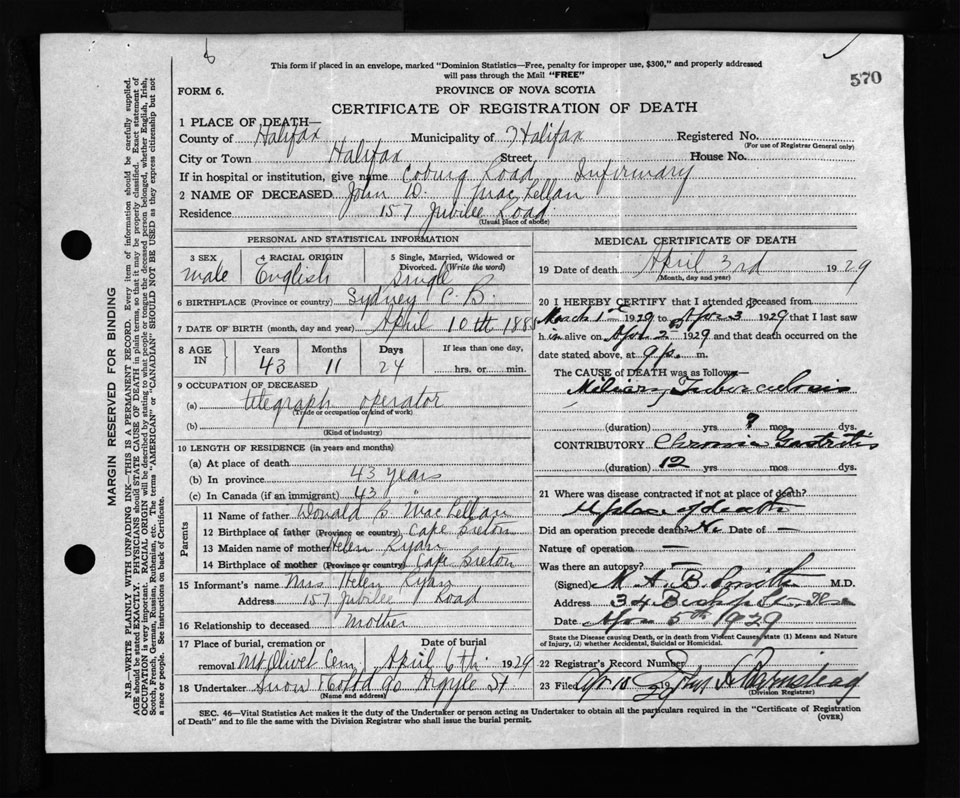 This form if placed in an envelope, marked "Dominion Statistics—Free, penalty for improper use, $300," and properly addressed
will pass through the Mail "FREE"
570
FORM 6.
PROVINCE OF NOVA SCOTIA
CERTIFICATE OF REGISTRATION OF DEATH
1 PLACE OF DEATH—
County of Halifax Municipality of Halifax Registered No.
(For use of Registrar General only)
City or Town Halifax Street House No.
If in hospital or institution, give name Coburg Road Infirmary
2 NAME OF DECEASED John D. MacLellan
Residence 157 Jubilee Road
(Usual place of abode)
PERSONAL AND STATISTICAL INFORMATION
3 SEX male
4 RACIAL ORIGIN English
5 Single, Married, Widowed or Divorced. (Write the word) Single
6 BIRTHPLACE (Province or country) Sydney C. B.
7 DATE OF BIRTH (month, day and year) April 10th 1885
8 AGE IN Years Months Days If less than one day,
43 11 24 hrs. or min.
9 OCCUPATION OF DECEASED
(a) telegraph operator
(Trade or occupation or kind of work)
(b)
(Kind of industry)
10 LENGTH OF RESIDENCE (in years and months)
(a) At place of death
(b) In province 43 years
(c) In Canada (if an immigrant) 43 "
Parents
11 Name of father Donald S. MacLellan
12 Birthplace of father (Province or country) Cape Breton
13 Maiden name of mother Helen Ryan
14 Birthplace of mother (Province or country) Cape Breton
15 Informant's name Mrs Helen Ryan
Address 157 Jubilee Road
16 Relationship to deceased Mother
17 Place of burial, cremation or Date of burial
removal Mt Olivet Cem. April 6th 1929
18 Undertaker Snow & Co Ltd 90 Argyle St
(Name and address)
MEDICAL CERTIFICATE OF DEATH
19 Date of death April 3rd 1929
(Month, day and year)
20 I HEREBY CERTIFY that I attended deceased from
March 1st 1929 to Apr 3 1929 that I last saw
him alive on Apr 2nd 1929 and that death occurred on the
date stated above, at 9 p. m.
The CAUSE of DEATH was as follows—
Miliary Tuberculosis
(duration) yrs ? mos dys.
CONTRIBUTORY Chronic Gastritis
(duration) 12 yrs mos dys.
21 Where was disease contracted if not at place of death?
At place of death
Did an operation precede death No Date of —
Nature of operation —
Was there an autopsy? —
(Signed) M. A. B. Smith M.D.
Address 34 St
Date Apr 5th 1929
State the Disease causing Death, or in death from Violent Causes, state (1) Means and Nature
of Injury, (2) whether Accidental, Suicidal or Homicidal.
22 Registrar's Record Number
23 Filed Apr 10 1929 John A Barnstead
(Division Registrar)
SEC. 46—Vital Statistics Act makes it the duty of the Undertaker or person acting as Undertaker to obtain all the particulars required in the "Certificate of Registration
of Death" and to file the same with the Division Registrar who shall issue the burial permit.
(OVER)
MARGIN RESERVED FOR BINDING
N.B.—WRITE PLAINLY WITH UNFADING INK—THIS IS A PERMANENT RECORD. Every item of information should be carefully supplied.
AGE should be stated EXACTLY. PHYSICIANS should STATE CAUSE OF DEATH in plain terms, so that it may be properly classified. Exact statement of
OCCUPATION is very important. RACIAL ORIGIN will be described by stating to what people or tongue the deceased person belonged, whether English, Irish,
Scotch, French, German, Russian, Ruthenian, etc. The terms "AMERICAN" or "CANADIAN" SHOULD NOT BE USED as they express citizenship but not
a race or people. See instructions on back of Certificate.